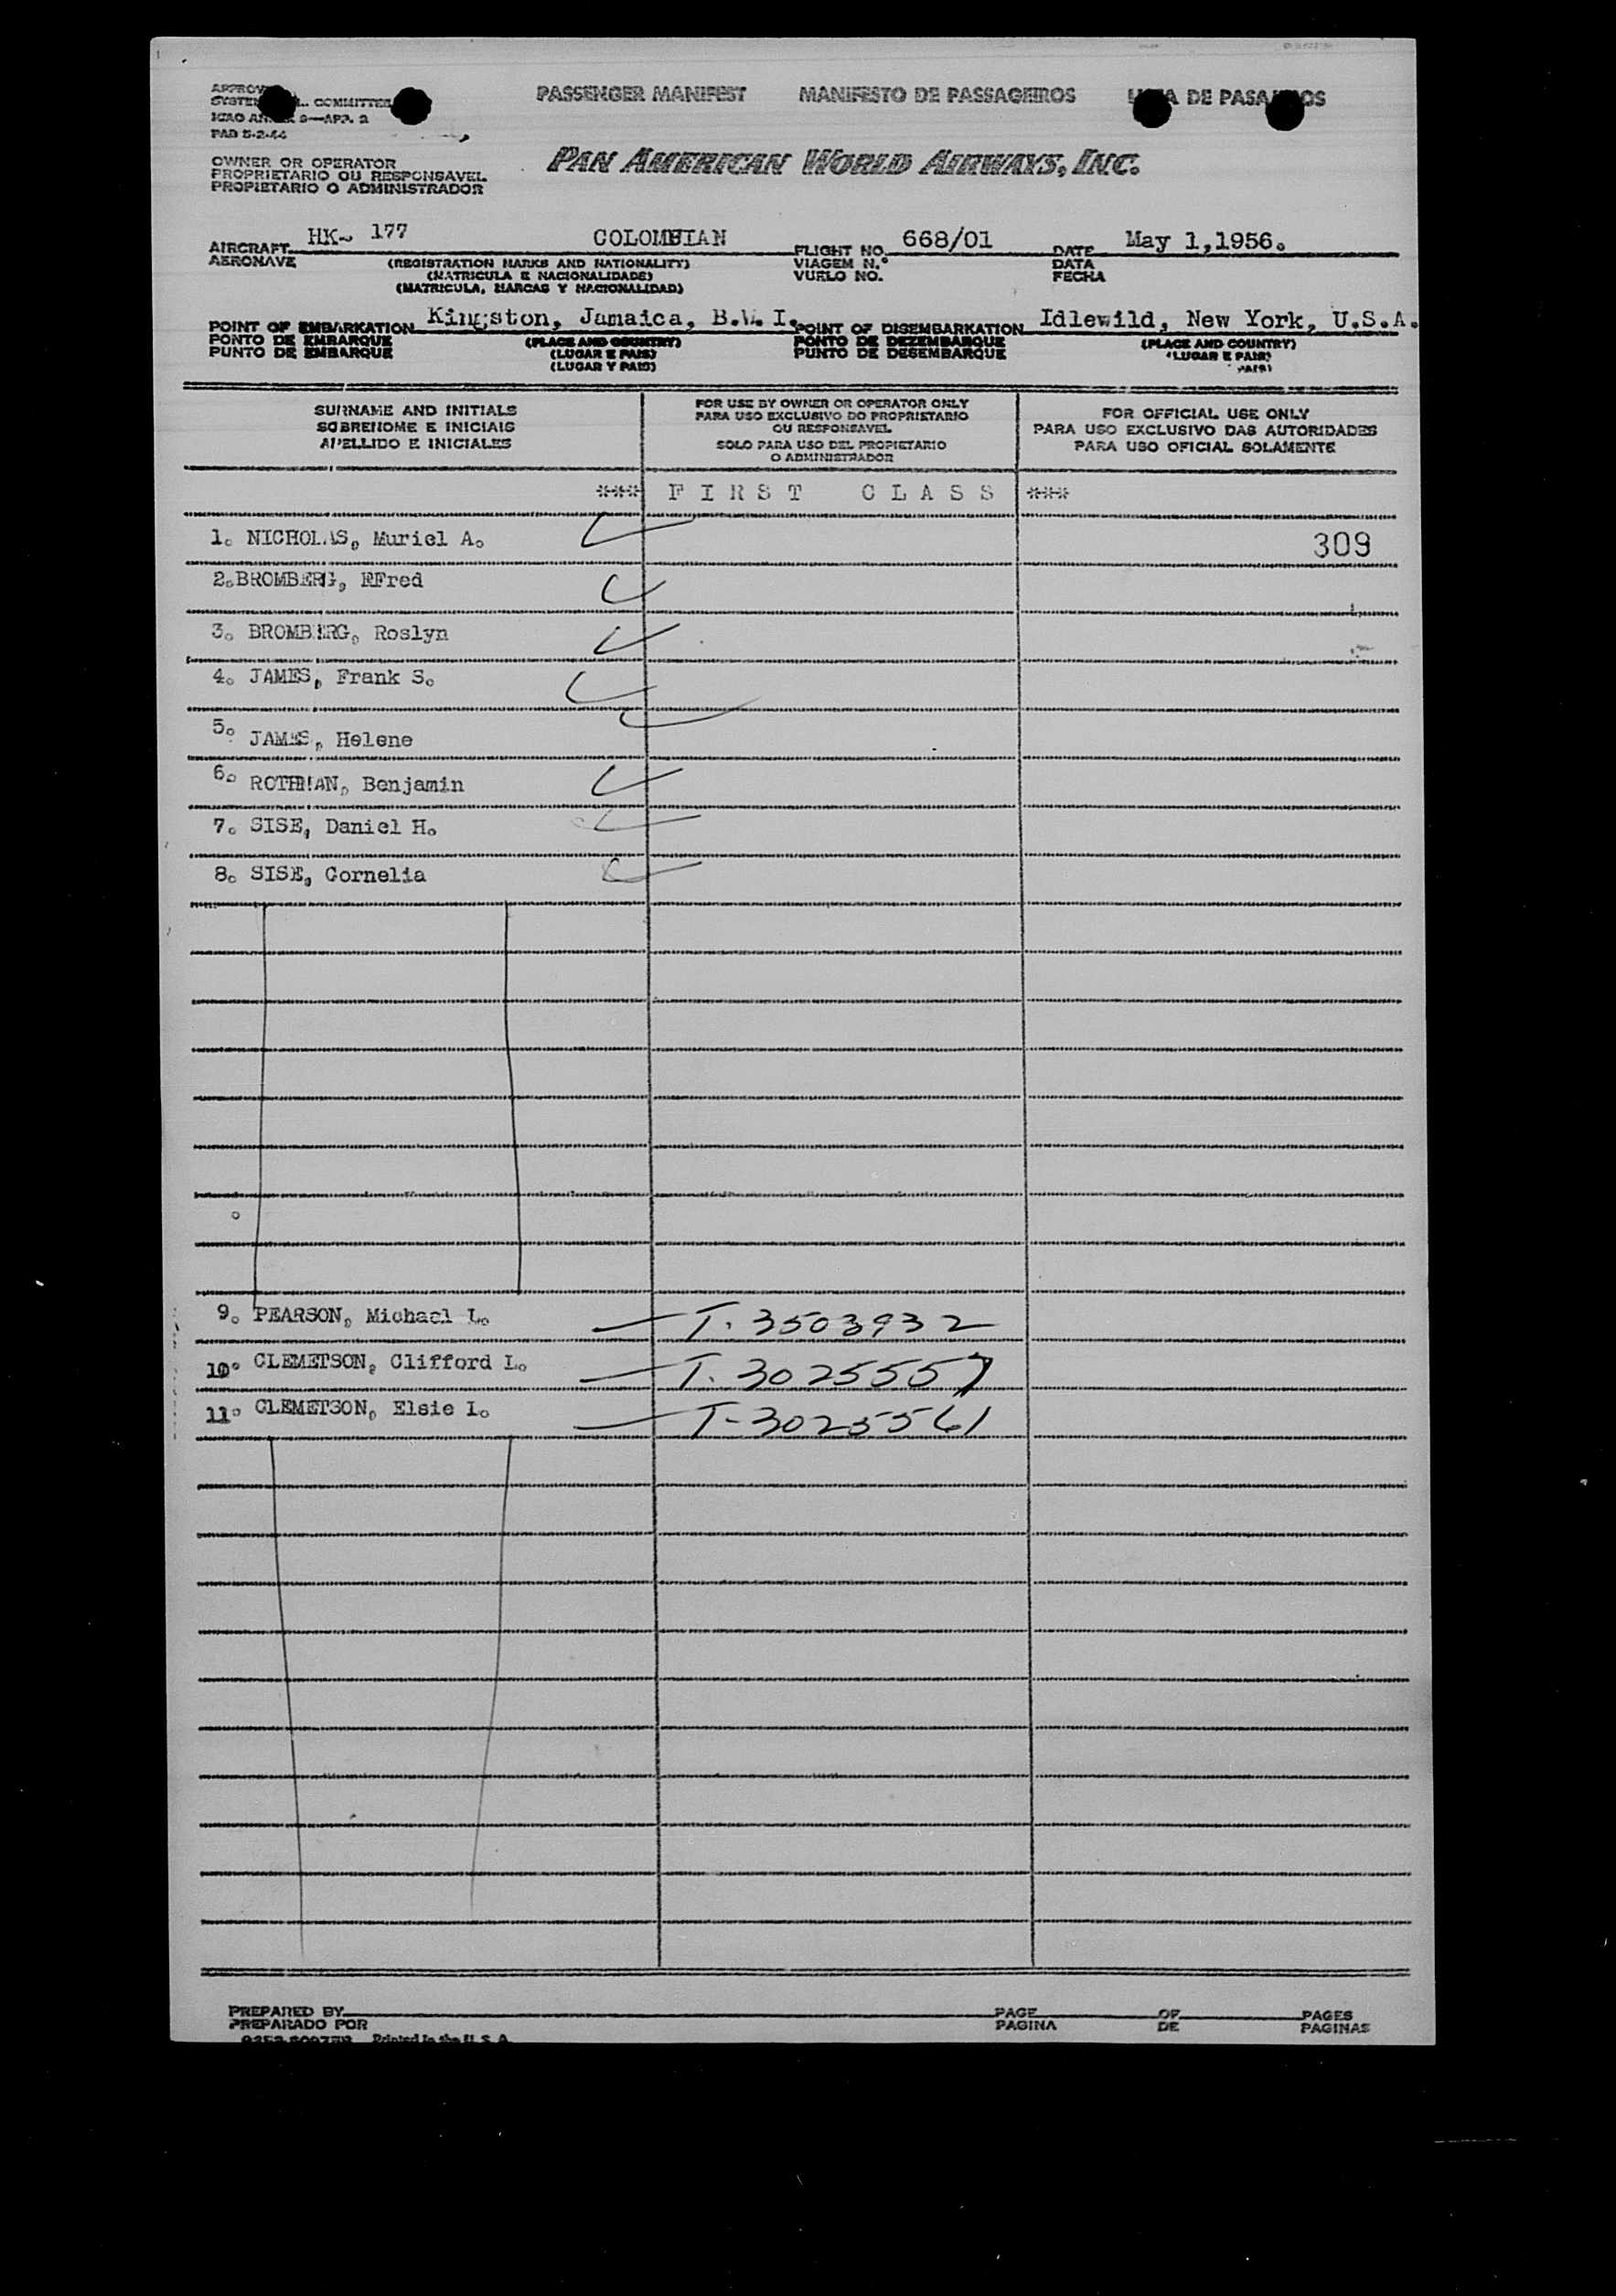 PASSENGER MANIFEST MANIFESTO DE PASSAGEIROS DE
COMMITTEE
ICAO 9—APP. 2
PAD 5-2-44
OWNER OR OPERATOR
PROPRIETARIO OU RESPONSAVEL
PROPIETARIO O ADMINISTRADOR
PAN AMERICAN WORLD AIRWAYS, INC.
AIRCRAFT HK- 177 COLOMBIAN FLIGHT NO. 668/01 DATE May 1,1956.
AERONAVE (REGISTRATION MARKS AND NATIONALITY) VIAGEM N.° DATA
(MATRICULA E NACIONALIDADE) VUELO NO. FECHA
(MATRICULA, MARCAS Y NACIONALIDAD)
POINT OF EMBARKATION Kingston, Jamaica, B.W.I. POINT OF DISEMBARKATION Idlewild, New York, U.S.A.
PONTO DE EMBARQUE (PLACE AND COUNTRY) PONTO DE DEZEMBARQUE (PLACE AND COUNTRY)
PUNTO DE EMBARQUE (LUGAR E PAIS) PUNTO DE DESEMBARQUE (LUGAR E PAIS)
(LUGAR Y PAIS) PAIS)
SURNAME AND INITIALS
SOBRENOME E INICIAIS
APELLIDO E INICIALES
FOR USE BY OWNER OR OPERATOR ONLY
PARA USO EXCLUSIVO DO PROPRIETARIO
OU RESPONSAVEL
SOLO PARA USO DEL PROPIETARIO
O ADMINISTRADOR
FOR OFFICIAL USE ONLY
PARA USO EXCLUSIVO DAS AUTORIDADES
PARA USO OFICIAL SOLAMENTE
*** FIRST CLASS ***
1. NICHOLAS, Muriel A. 309
2. BROMBERG, EFred
3. BROMBERG, Roslyn
4. JAMES, Frank S.
5. JAMES, Helene
6. ROTHMAN, Benjamin
7. SISE, Daniel H.
8. SISE, Cornelia
9. PEARSON, Michael L. T. 3503932
10. CLEMETSON, Clifford L. T. 3025557
11. CLEMETSON, Elsie I. T-3025561
PREPARED BY PAGE OF PAGES
PREPARADO POR PAGINA DE PAGINAS
Printed in the U.S.A.